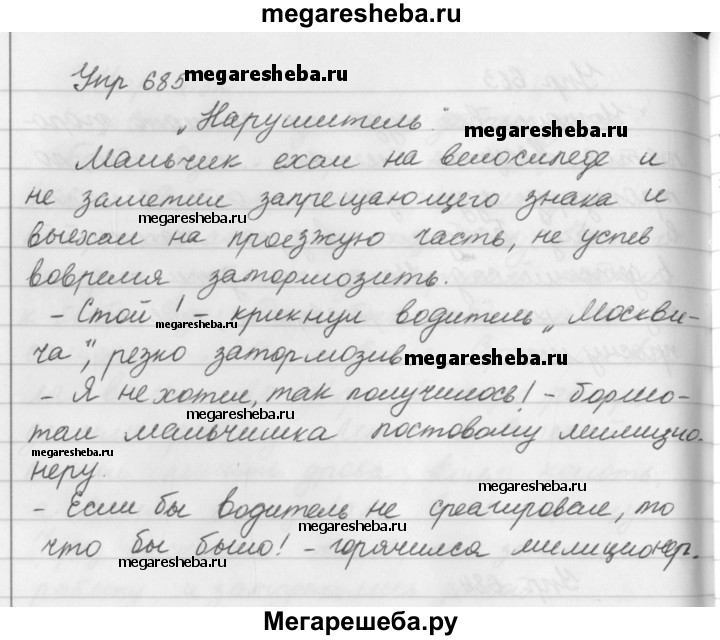 megaresheba.ru
Упр 685 megaresheba.ru
„Нарушитель" megaresheba.ru
Мальчик ехал на велосипеде и
не заметил запрещающего знака и
megaresheba.ru
выехал на проезжую часть, не успев
вовремя затормозить.
- Стой! - крикнул водитель „Москви-
megaresheba.ru
ча", резко затормозив megaresheba.ru
- Я не хотел, так получилось! - бормо-
megaresheba.ru
тал мальчишка постовому милицио-
неру.
megaresheba.ru
- Если бы водитель не среагировал, то
megaresheba.ru
что бы было! - горячился милиционер.
megaresheba.ru
Мегарешеба.ру